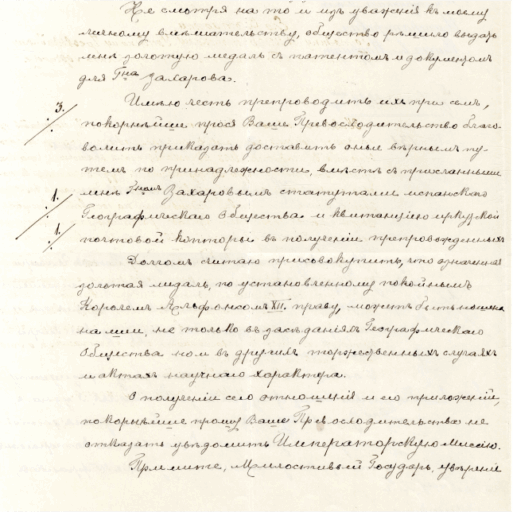 Не смотря на то и изъ уваженія къ моему
личному вмешательству, общество решило выдать
мнѣ золотую медаль съ патентомъ и документомъ
для Гна Захарова.
3. Имѣю честь препроводить ихъ при семъ,
покорнѣйше прося Ваше Превосходительство благо-
волить приказать доставить оные вѣрнымъ пу-
темъ по принадлежности, вмѣстѣ съ присланными
1. мнѣ Гномъ Захаровымъ статутами испанскаго
Географическаго Общества и квитанціею иркутской
1. почтовой конторы въ полученіи препровожденныхъ
Долгомъ считаю присовокупить, что означенная
золотая медаль, по установленному покойнымъ
Королемъ Альфонсомъ XII. праву, можетъ быть носима
на шеи, не только въ засѣданіяхъ Географическаго
Общества, но и въ другихъ торжественныхъ случаяхъ
и актахъ научнаго характера.
О полученіи сего отношенія и его приложеній,
покорнѣйше прошу Ваше Превосходительство не
отказать увѣдомить Императорскую Миссію.
Примите, Милостивый Государь, увѣреніе